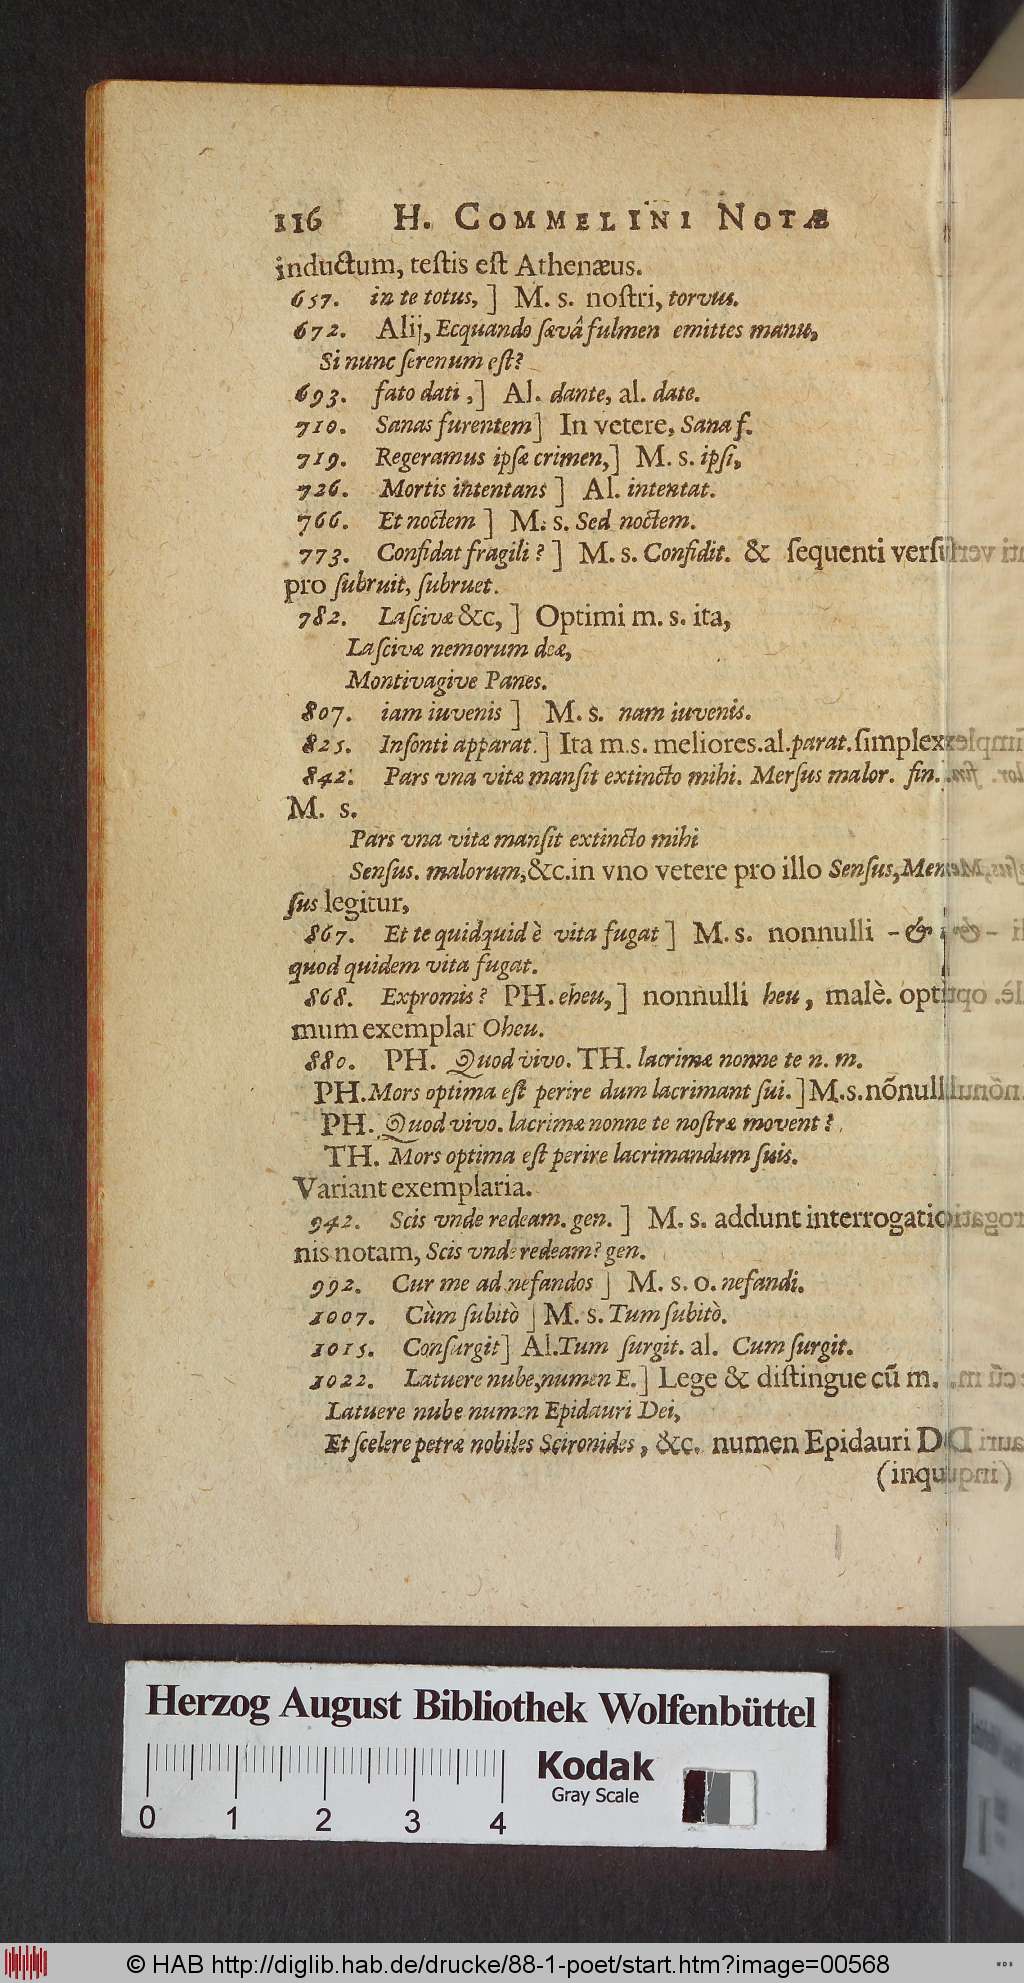 116 H. COMMELINI NOTÆ
inductum, teſtis eſt Athenæus.
657. in te totus, ] M. s. noſtri, torvus.
672. Alij, Ecquando ſævâ fulmen emittes manu,
Si nunc ſerenum eſt?
693. fato dati ,] Al. dante, al. date.
710. Sanas furentem] In vetere, Sana f.
719. Regeramus ipſæ crimen,] M. s. ipſi,
726. Mortis intentans ] Al. intentat.
766. Et noctem ] M. s. Sed noctem.
773. Confidat fragili? ] M. s. Confidit. & ſequenti verſu
pro ſubruit, ſubruet.
782. Laſcivæ &c, ] Optimi m. s. ita,
Laſcivæ nemorum deæ,
Montivagive Panes.
807. iam iuvenis ] M. s. nam iuvenis.
825. Inſonti apparat.] Ita m.s. meliores.al.parat.ſimplex
842. Pars vna vitæ manſit extincto mihi. Merſus malor. fin.
M. s.
Pars vna vitæ manſit extincto mihi
Senſus. malorum,&c.in vno vetere pro illo Senſus, Mer-
ſus legitur,
867. Et te quidquid è vita fugat ] M. s. nonnulli - &
quod quidem vita fugat.
868. Expromis? PH. eheu, ] nonnulli heu, malè. opti
mum exemplar Oheu.
880. PH. Quod vivo. TH. lacrimæ nonne te n. m.
PH. Mors optima eſt perire dum lacrimant ſui. ] M.s.nõnull
PH. Quod vivo. lacrimæ nonne te noſtræ movent?
TH. Mors optima eſt perire lacrimandum ſuis.
Variant exemplaria.
942. Scis vnde redeam. gen. ] M. s. addunt interrogatio
nis notam, Scis vnde redeam? gen.
992. Cur me ad nefandos ] M. s. o. nefandi.
1007. Cùm ſubitò ] M. s. Tum ſubitò.
1015. Conſurgit] Al.Tum ſurgit. al. Cum ſurgit.
1022. Latuere nube,numen E.] Lege & diſtingue cũ m.
Latuere nube numen Epidauri Dei,
Et ſcelere petræ nobiles Scironides, &c. numen Epidauri D
(inqu
Herzog August Bibliothek Wolfenbüttel
Kodak
Gray Scale
0 1 2 3 4
© HAB http://diglib.hab.de/drucke/88-1-poet/start.htm?image=00568